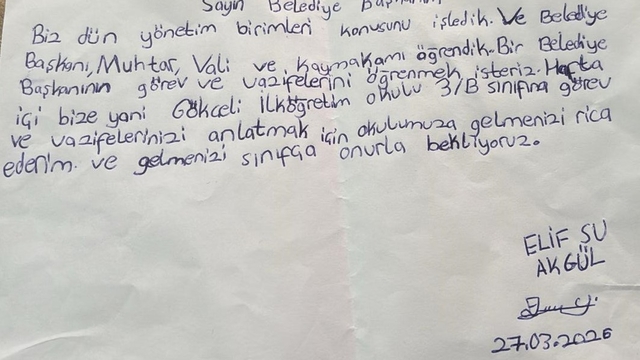 Sayın Belediye Başkanım
Biz dün yönetim birimleri konusunu işledik. Ve Belediye
Başkanı, Muhtar, Vali ve Kaymakamı öğrendik. Bir Belediye
Başkanının görev ve vazifelerini öğrenmek isteriz. Hafta
içi bize yani Gökçeli İlköğretim okulu 3/B sınıfına görev
ve vazifelerinizi anlatmak için okulumuza gelmenizi rica
ederim. ve gelmenizi sınıfça onurla bekliyoruz.
ELİF SU
AKGÜL
27.03.2026